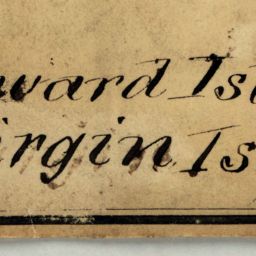 ward Isl
irgin Is